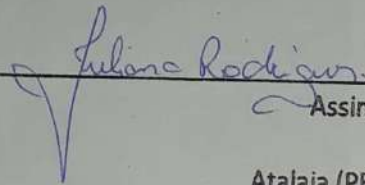 Juliana Rodrigues
Assin
Atalaia (PR